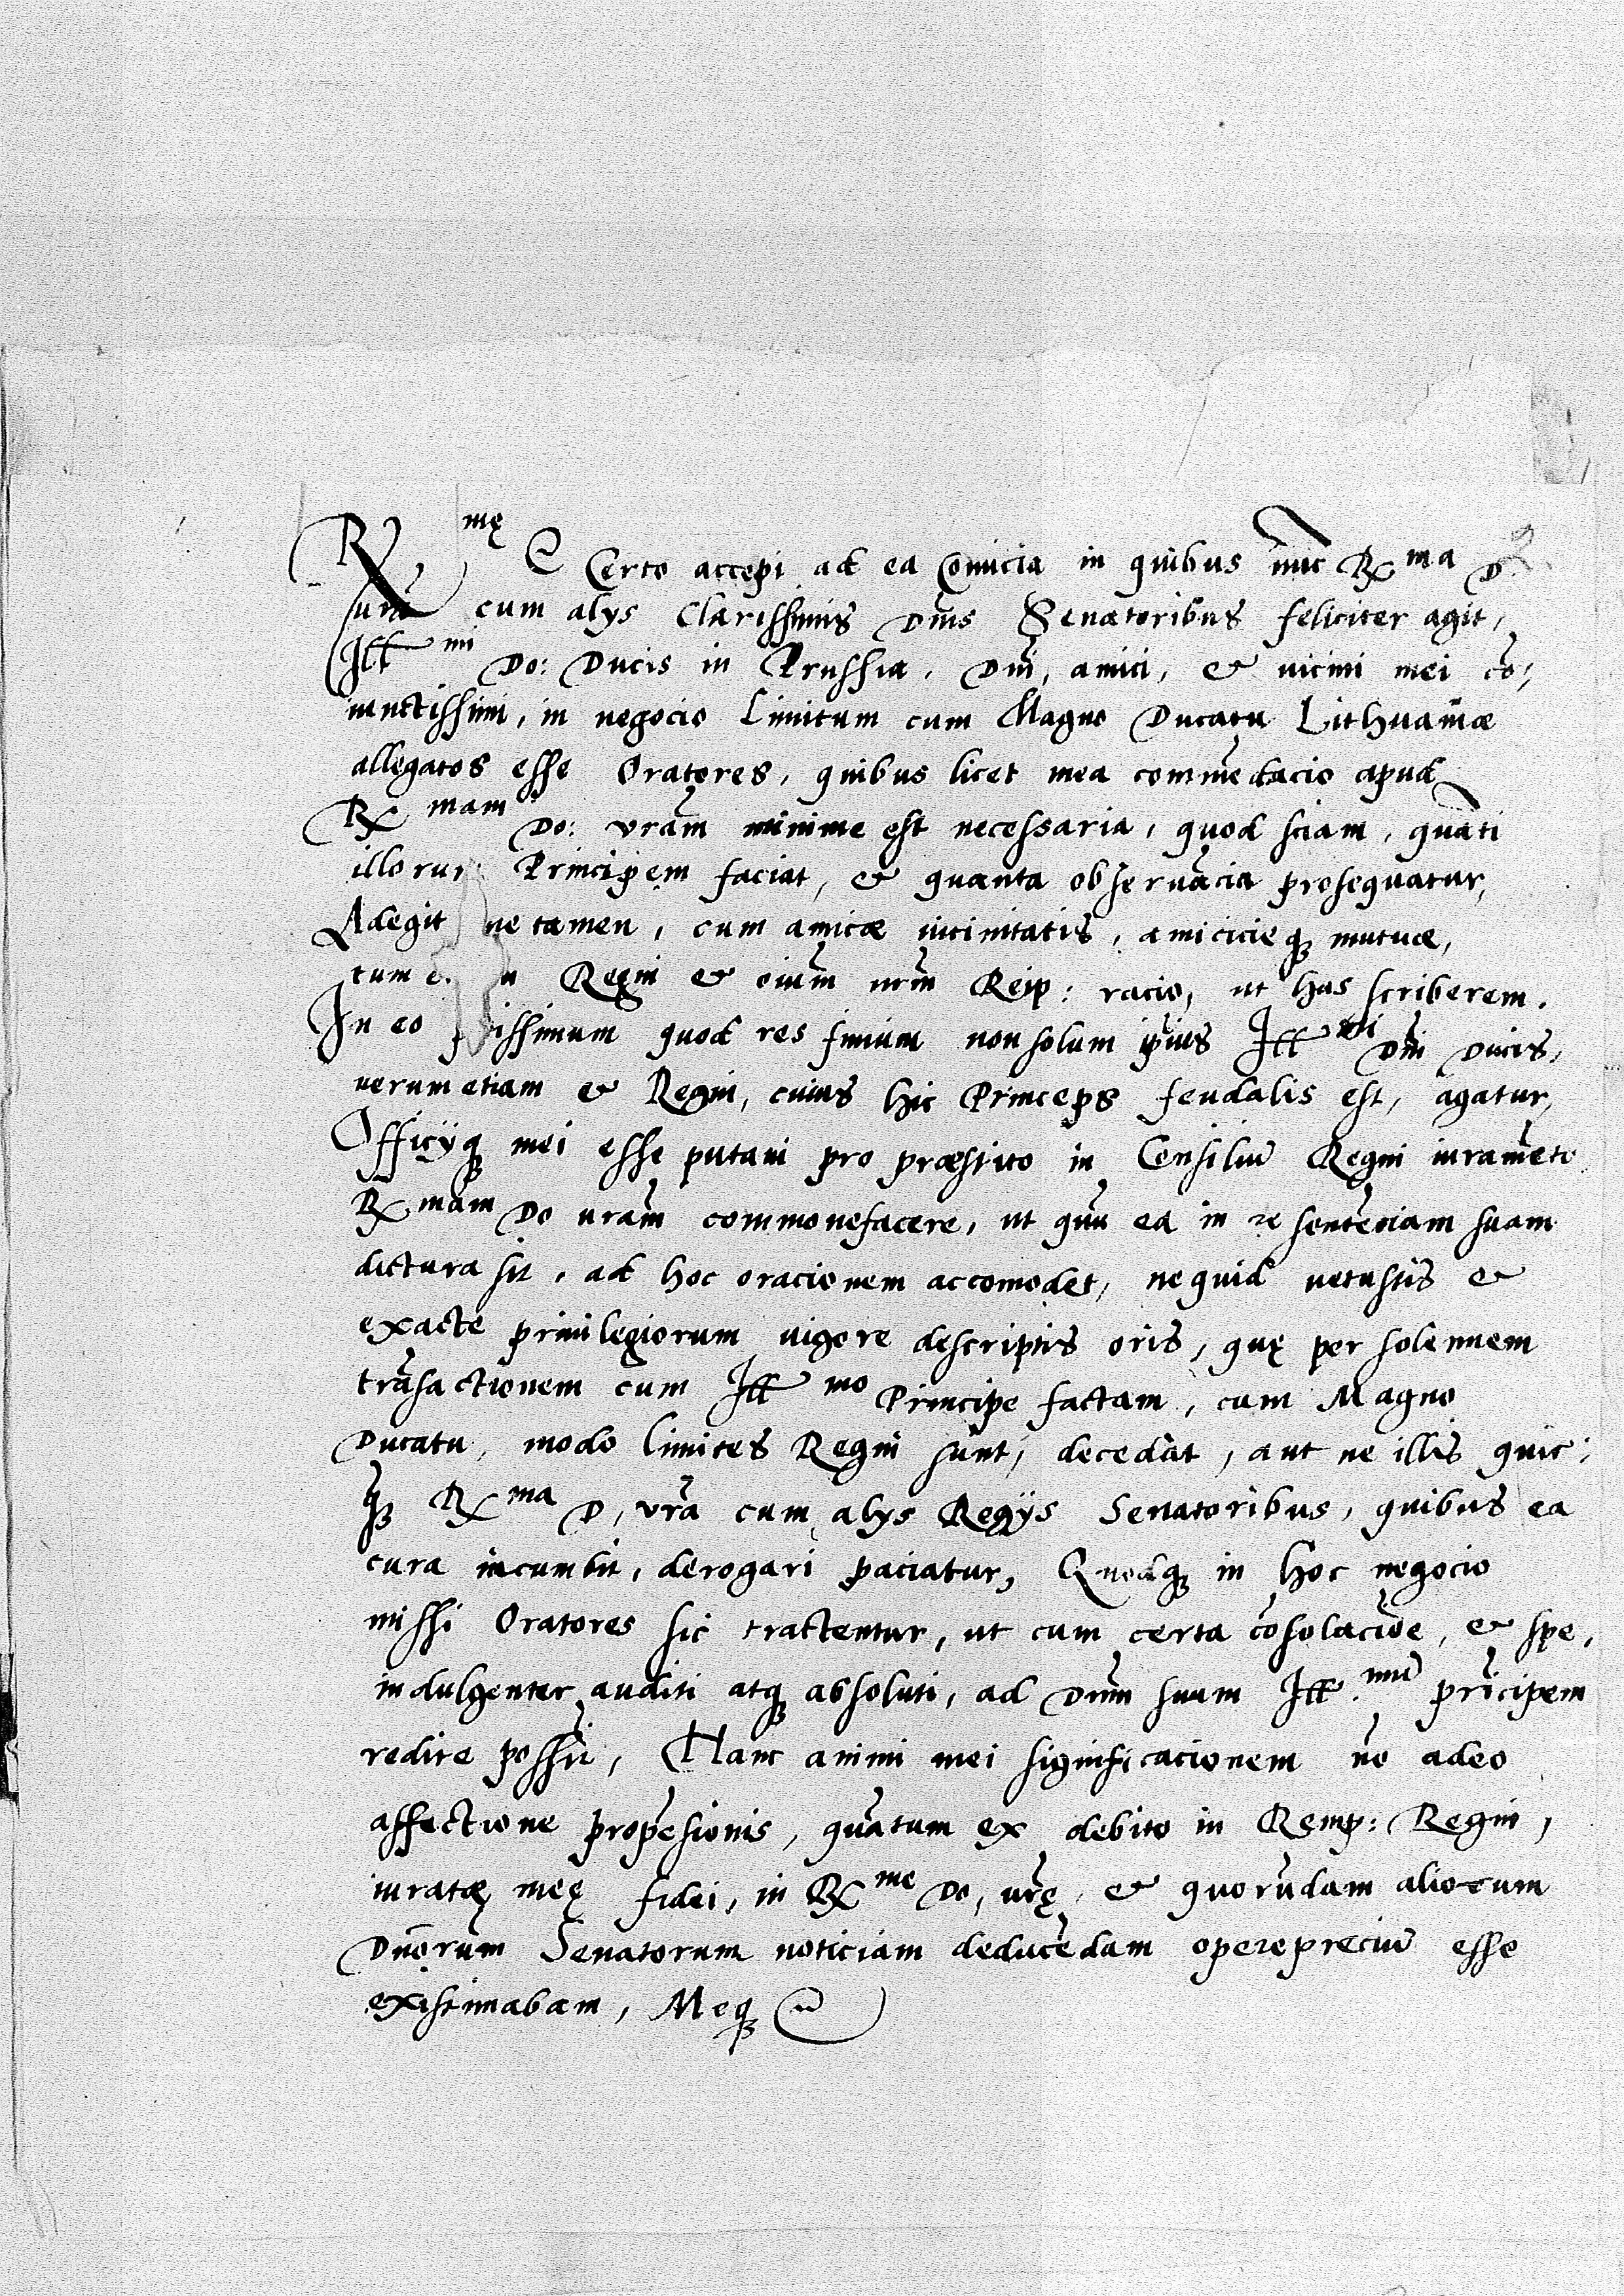 Rx mę & Certo accepi ad ea Comicia in quibus nūc Rx ma D.
sun̄t cum alys Clarissimis Dn̄is Senatoribus feliciter agit,
Ill mi Do: Ducis in Prussia, Dn̄i, amici, & uicini mei cō,
iunctissimi, in negocio Limitum cum Magno Ducatu Lithuaniæ
allegatos esse Oratores, quibus licet mea commēdacio apud
Rx mam Do: vrām minime est necessaria, quod sciam, quāti
illorum Principem faciat, & quanta obseruācia prosequatur,
Adegit me tamen, cum amicæ uicinitatis, amicicieq3 mutuæ,
tum Regni & oium̄ nrm̄ Reip: racio, ut has scriberem.
In eo issimum quod res finium non solum ipsius Ill mi Dn̄i Ducis,
uerum etiam & Regni, cuius hic Princeps feudalis est, agatur,
Officijq3 mei esse putaui pro præstito in Consiliū Regni iuramēto
Rx mam Do urām commonefacere, ut quū ea in re sentēciam suam
dictura sit, ad hoc oracionem accomodet, ne quid uetustis &
exacte priuilegiorum uigore descriptis oris, quę per solennem
trāsactionem cum Ill mo Principe factam, cum Magno
Ducatu, modo limites Regni sunt, decedat, aut ne illis quic:
q3 Rx ma D, vrā cum alys Regijs Senatoribus, quibus ea
cura incumbit, derogari paciatur, Quodq3 in hoc negocio
missi Oratores sic tractentur, ut cum certa cōsolaciōe, & spe,
indulgenter auditi atq3 absoluti, ad Dnm̄ suum Ill. mū prīcipem
redire possīt, Hanc animi mei significacionem nō adeo
affectione propēsionis, quātum ex debito in Remp: Regni,
iuratæ meę fidei, in Rx me Do, urę, & quorūdam aliorum
Dnōrum Senatorum noticiam deducēdam operepreciū esse
existimabam, Meq3